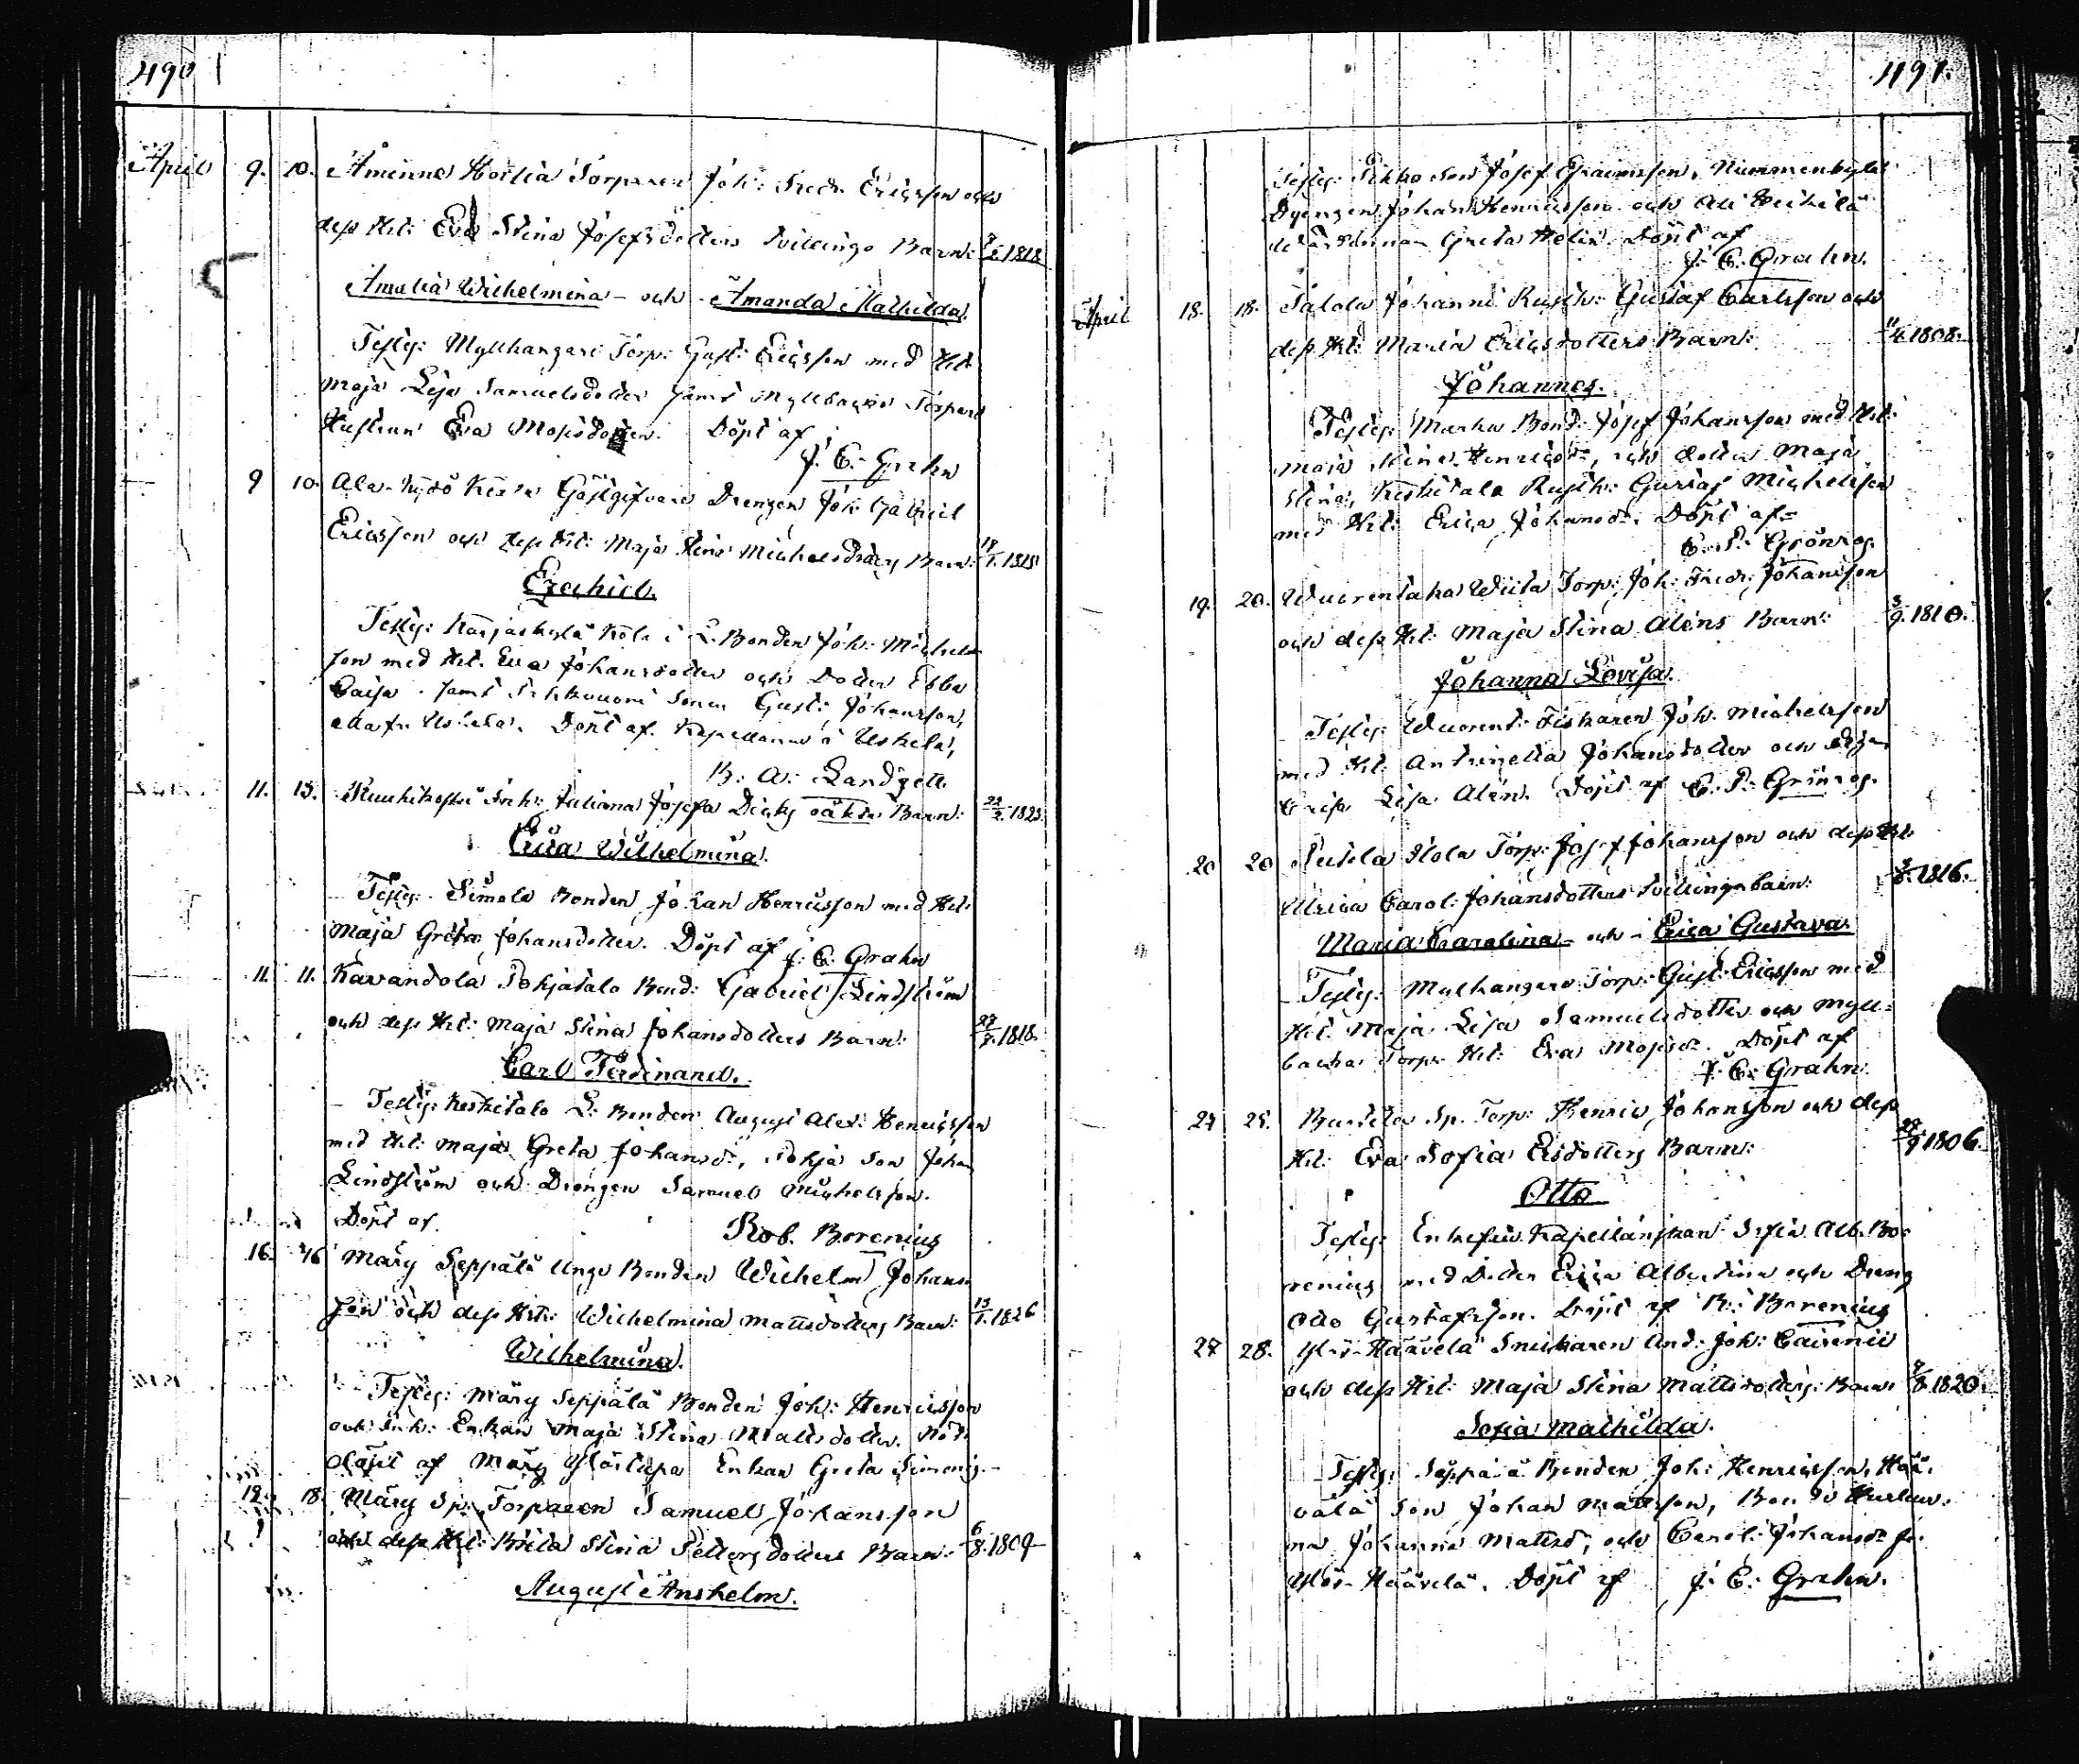 490
April 9. 10. Åminne Torparen Joh: Fredr. Ericsson och
dessHt: Eva Stina Josefsdotters tvillinge Barn: 1818
Amalia Wilhelmina - och - Amanda Mathilda.
Testes: Myllkangare Torp: Gust: Ericsson med Ht:
Maja Lisa Samuelsdotter samt Myllbacka Torpare
Hustrun Eva Mosisdotter. Döpt af
J. E. Grahn
9 10. Ala-Hydö Gästgifvare Drengen Joh: Gabriel
Ericsson och dess Ht: Maja Stina Michelsdotters Barn: 1815
Ezechiel.
Testes: Karjaskylä i L. Bonden Joh: Michels
son med Ht. Eva Johansdotter och Dotter Ebba
Caisa. samt Sonen Gust: Johansson,
alla fr. Uskela. Döpt af Kapellanen i Uskela,
B: A: Landzett
11. 15. Ruuhikoski Inh: Juliana Josefa oäkta Barn: 1823
Erica Wilhelmina.
Testes: Simola Bonden Johan Henricsson med Ht:
Maja Greta Johansdotter. Döpt af J. E. Grahn
11. 11. Kavandola Pohjatalo Bond: Gabriel Lindström
och dess Ht: Maja Stina Johansdotters Barn: 27/7. 1818.
Carl Ferdinand.
Testes: Keskitalo L. Bonden August Alex: Henricsson
med Ht: Maja Greta Johansd:, Pohja Son Johan
Lindström och Drengen Samuel Michelsson.
Döpt af Rob. Borenius
16. 16 Märy Seppälä Unge Bonden Wilhelm Johans
son och dess Ht: Wilhelmina Mattsdotters Barn: 13/1. 1826
Wilhelmina.
Testes: Märy Seppälä Bonden Joh: Henricsson
och Inh: Enkan Maja Stina Mattsdotter. Nöd
döpt af Märy Ylöstupa Enkan Greta
18. 18. Märy Sp: Torparen Samuel Johansson
och dess Ht: Brita Stina Pettersdotters Barn: 6/8. 1809
August Anshelm.
491.
Testes: Pikko Son Josef Efraimsson, Nummenkylä
Drengen Johan Henricsson och Ali Heikilä
Greta Helin. Döpt af
J. E. Grahn.
April 18. 18. Talola Johanni Rusth: Gustaf Carlsson och
dess Ht: Maria Ericsdotters Barn: 1808.
Johannes.
Testes: Marka Bond: Josef Johansson med Ht:
Maja Stina Henricsd:, och dotter Maja
Stina, Keskitalo Rusth: Gustaf Michelsson
med Ht: Erica Johansd: Döpt af
C. P. Grönros.
19. 20. Wuorentaka Torp: Joh: Fredr: Johansson
och dess Ht: Maja Stina Aléns Barn: 3/9. 1810.
Johanna Lovisa.
Testes: Wuorent: Fiskaren Joh. Michelsson
med Ht: Antonetta Johansdotter och
Lisa Alén. Döpt af C. P. Grönros.
20 20 Torp: Josef Johansson och dess Ht:
Ulrica Carol: Johansdotters tvillinge barn: 1816.
Maria Carolina - och - Erica Gustava.
Testes: Myllkangare Torp: Gust: Ericsson med
Ht: Maja Lisa Samuelsdotter och Myll-
backa Torp: Ht: Eva Mosisd:. Döpt af
J. E. Grahn.
24 25. Sp. Torp: Henric Johansson och dess
Ht: Eva Sofia Ersdotters Barn: 1806.
Otto
Testes: Enkefru Kapellanskan Sofia Alb. Bo-
renius med Dotter Erica Albertina och Dreng
Otto Gustafsson. Döpt af R: Borenius
27 28. Häävelä Snickaren And: Joh:
och dess Ht: Maja Stina Mattsdotters Barn: 1820.
Sofia Mathilda.
Testes: Seppälä Bonden Joh: Henricsson, Hää-
välä Son Johan Mattsson, Hustrur-
na Johanna Mattsd:, och Carol: Johansd: fr.
Häävelä. Döpt af J. E. Grahn.